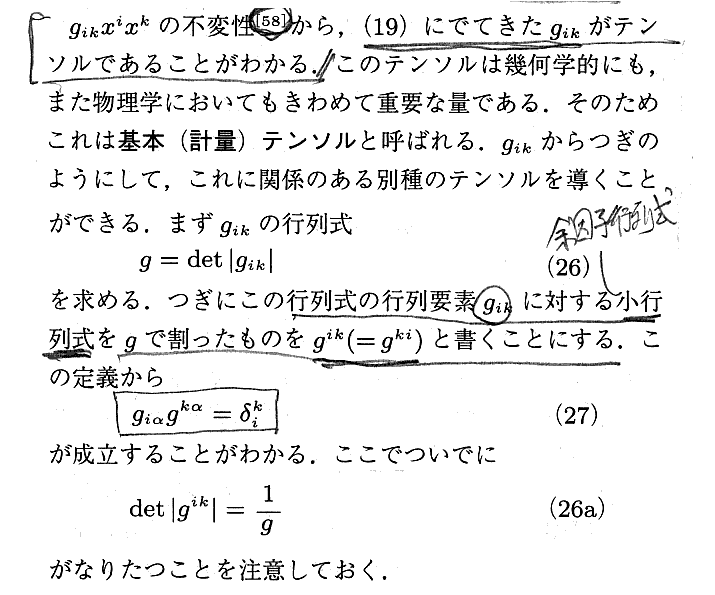 g_{ik}x^i x^k の不変性[58]から，(19) にでてきた g_{ik} がテン
ソルであることがわかる．このテンソルは幾何学的にも，
また物理学においてもきわめて重要な量である．そのため
これは基本（計量）テンソルと呼ばれる．g_{ik} からつぎの
ようにして，これに関係のある別種のテンソルを導くこと
ができる．まず g_{ik} の行列式
余因子行列式
g = det |g_{ik}| (26)
を求める．つぎにこの行列式の行列要素 g_{ik} に対する小行
列式を g で割ったものを g^{ik}(= g^{ki}) と書くことにする．こ
の定義から
g_{iα}g^{kα} = δ_i^k (27)
が成立することがわかる．ここでついでに
det |g^{ik}| = 1/g (26a)
がなりたつことを注意しておく．